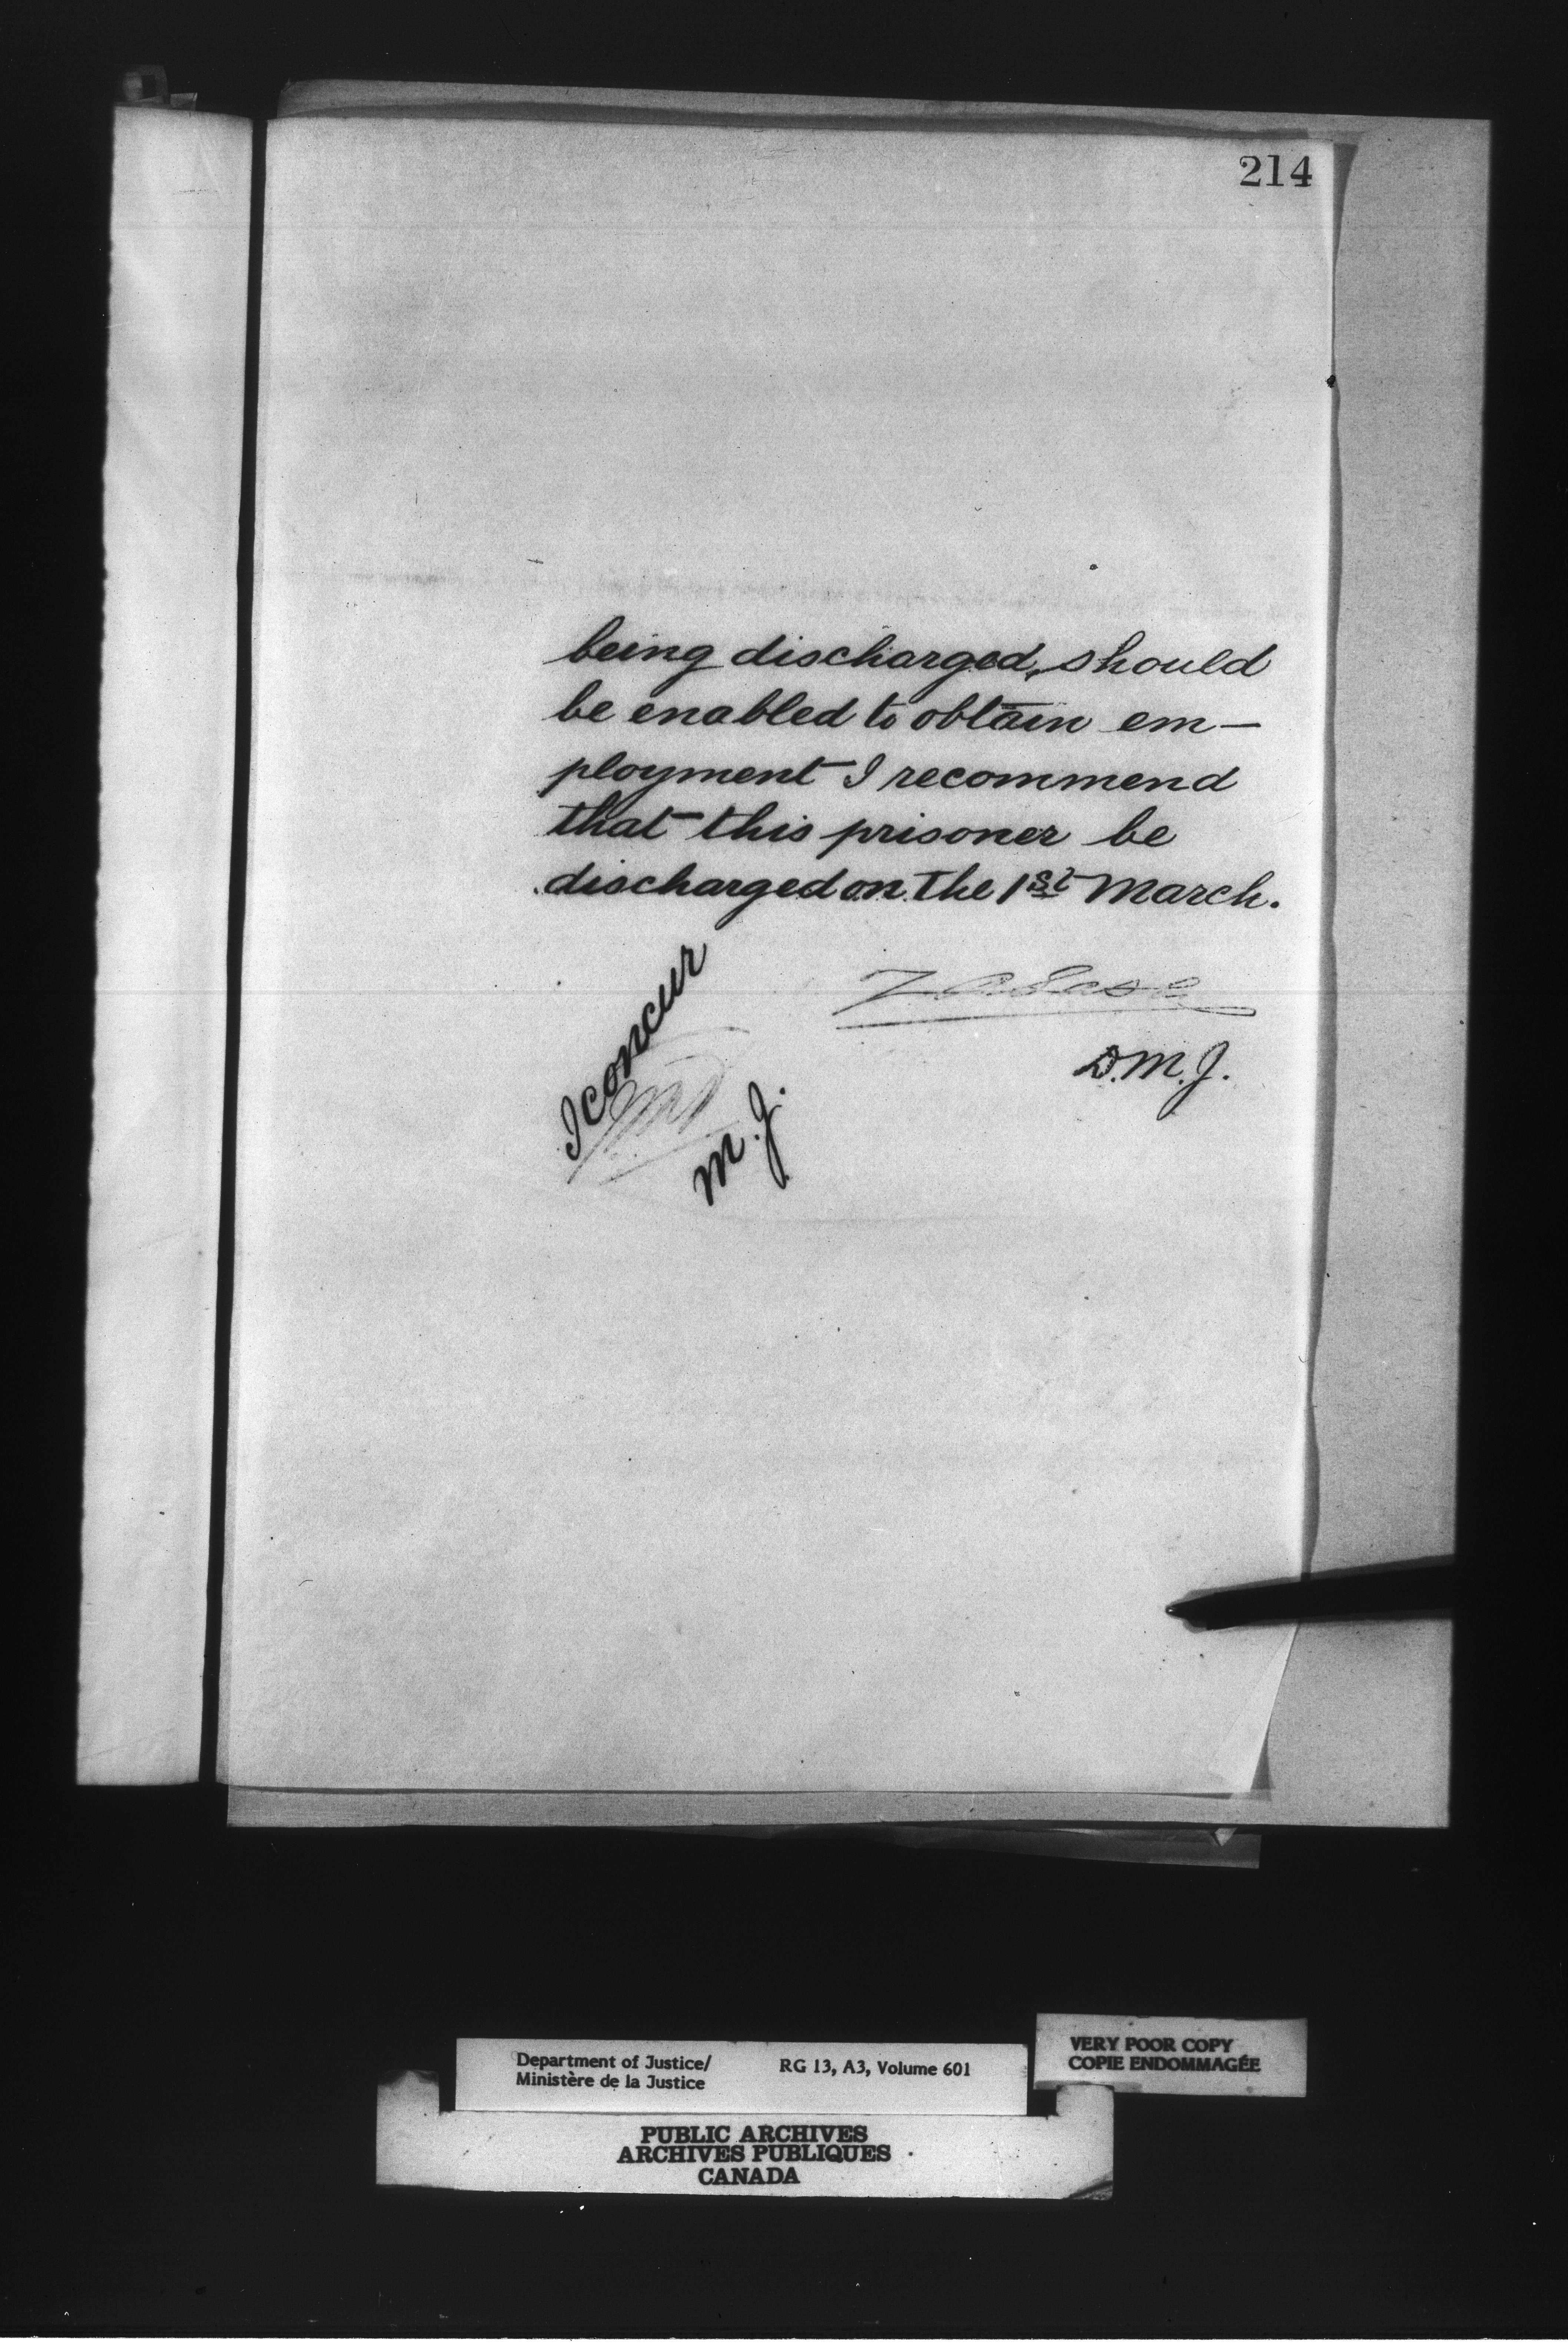 214
being discharged, should
be enabled to obtain em-
ployment I recommend
that this prisoner be
discharged on the 1st March.
I concur
M.J.
D.M.J.
Department of Justice/
Ministère de la Justice
RG 13, A3, Volume 601
VERY POOR COPY
COPIE ENDOMMAGÉE
PUBLIC ARCHIVES
ARCHIVES PUBLIQUES
CANADA